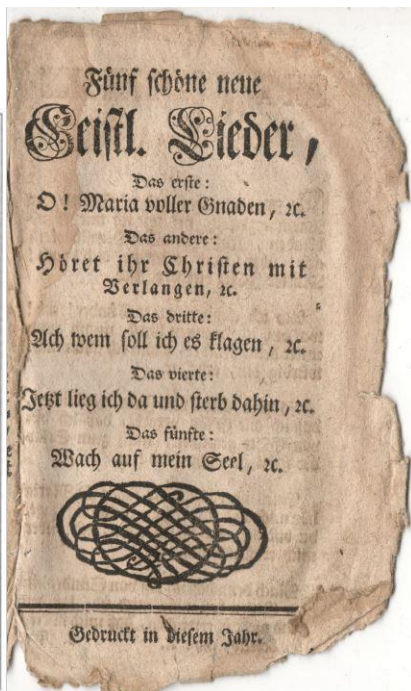 Fünf schöne neue
Geistl. Lieder,
Das erste:
O! Maria voller Gnaden, ꝛc.
Das andere:
Höret ihr Christen mit
Verlangen, ꝛc.
Das dritte:
Ach wem soll ich es klagen, ꝛc.
Das vierte:
Jetzt lieg ich da und sterb dahin, ꝛc.
Das fünfte:
Wach auf mein Seel, ꝛc.
Gedruckt in diesem Jahr.